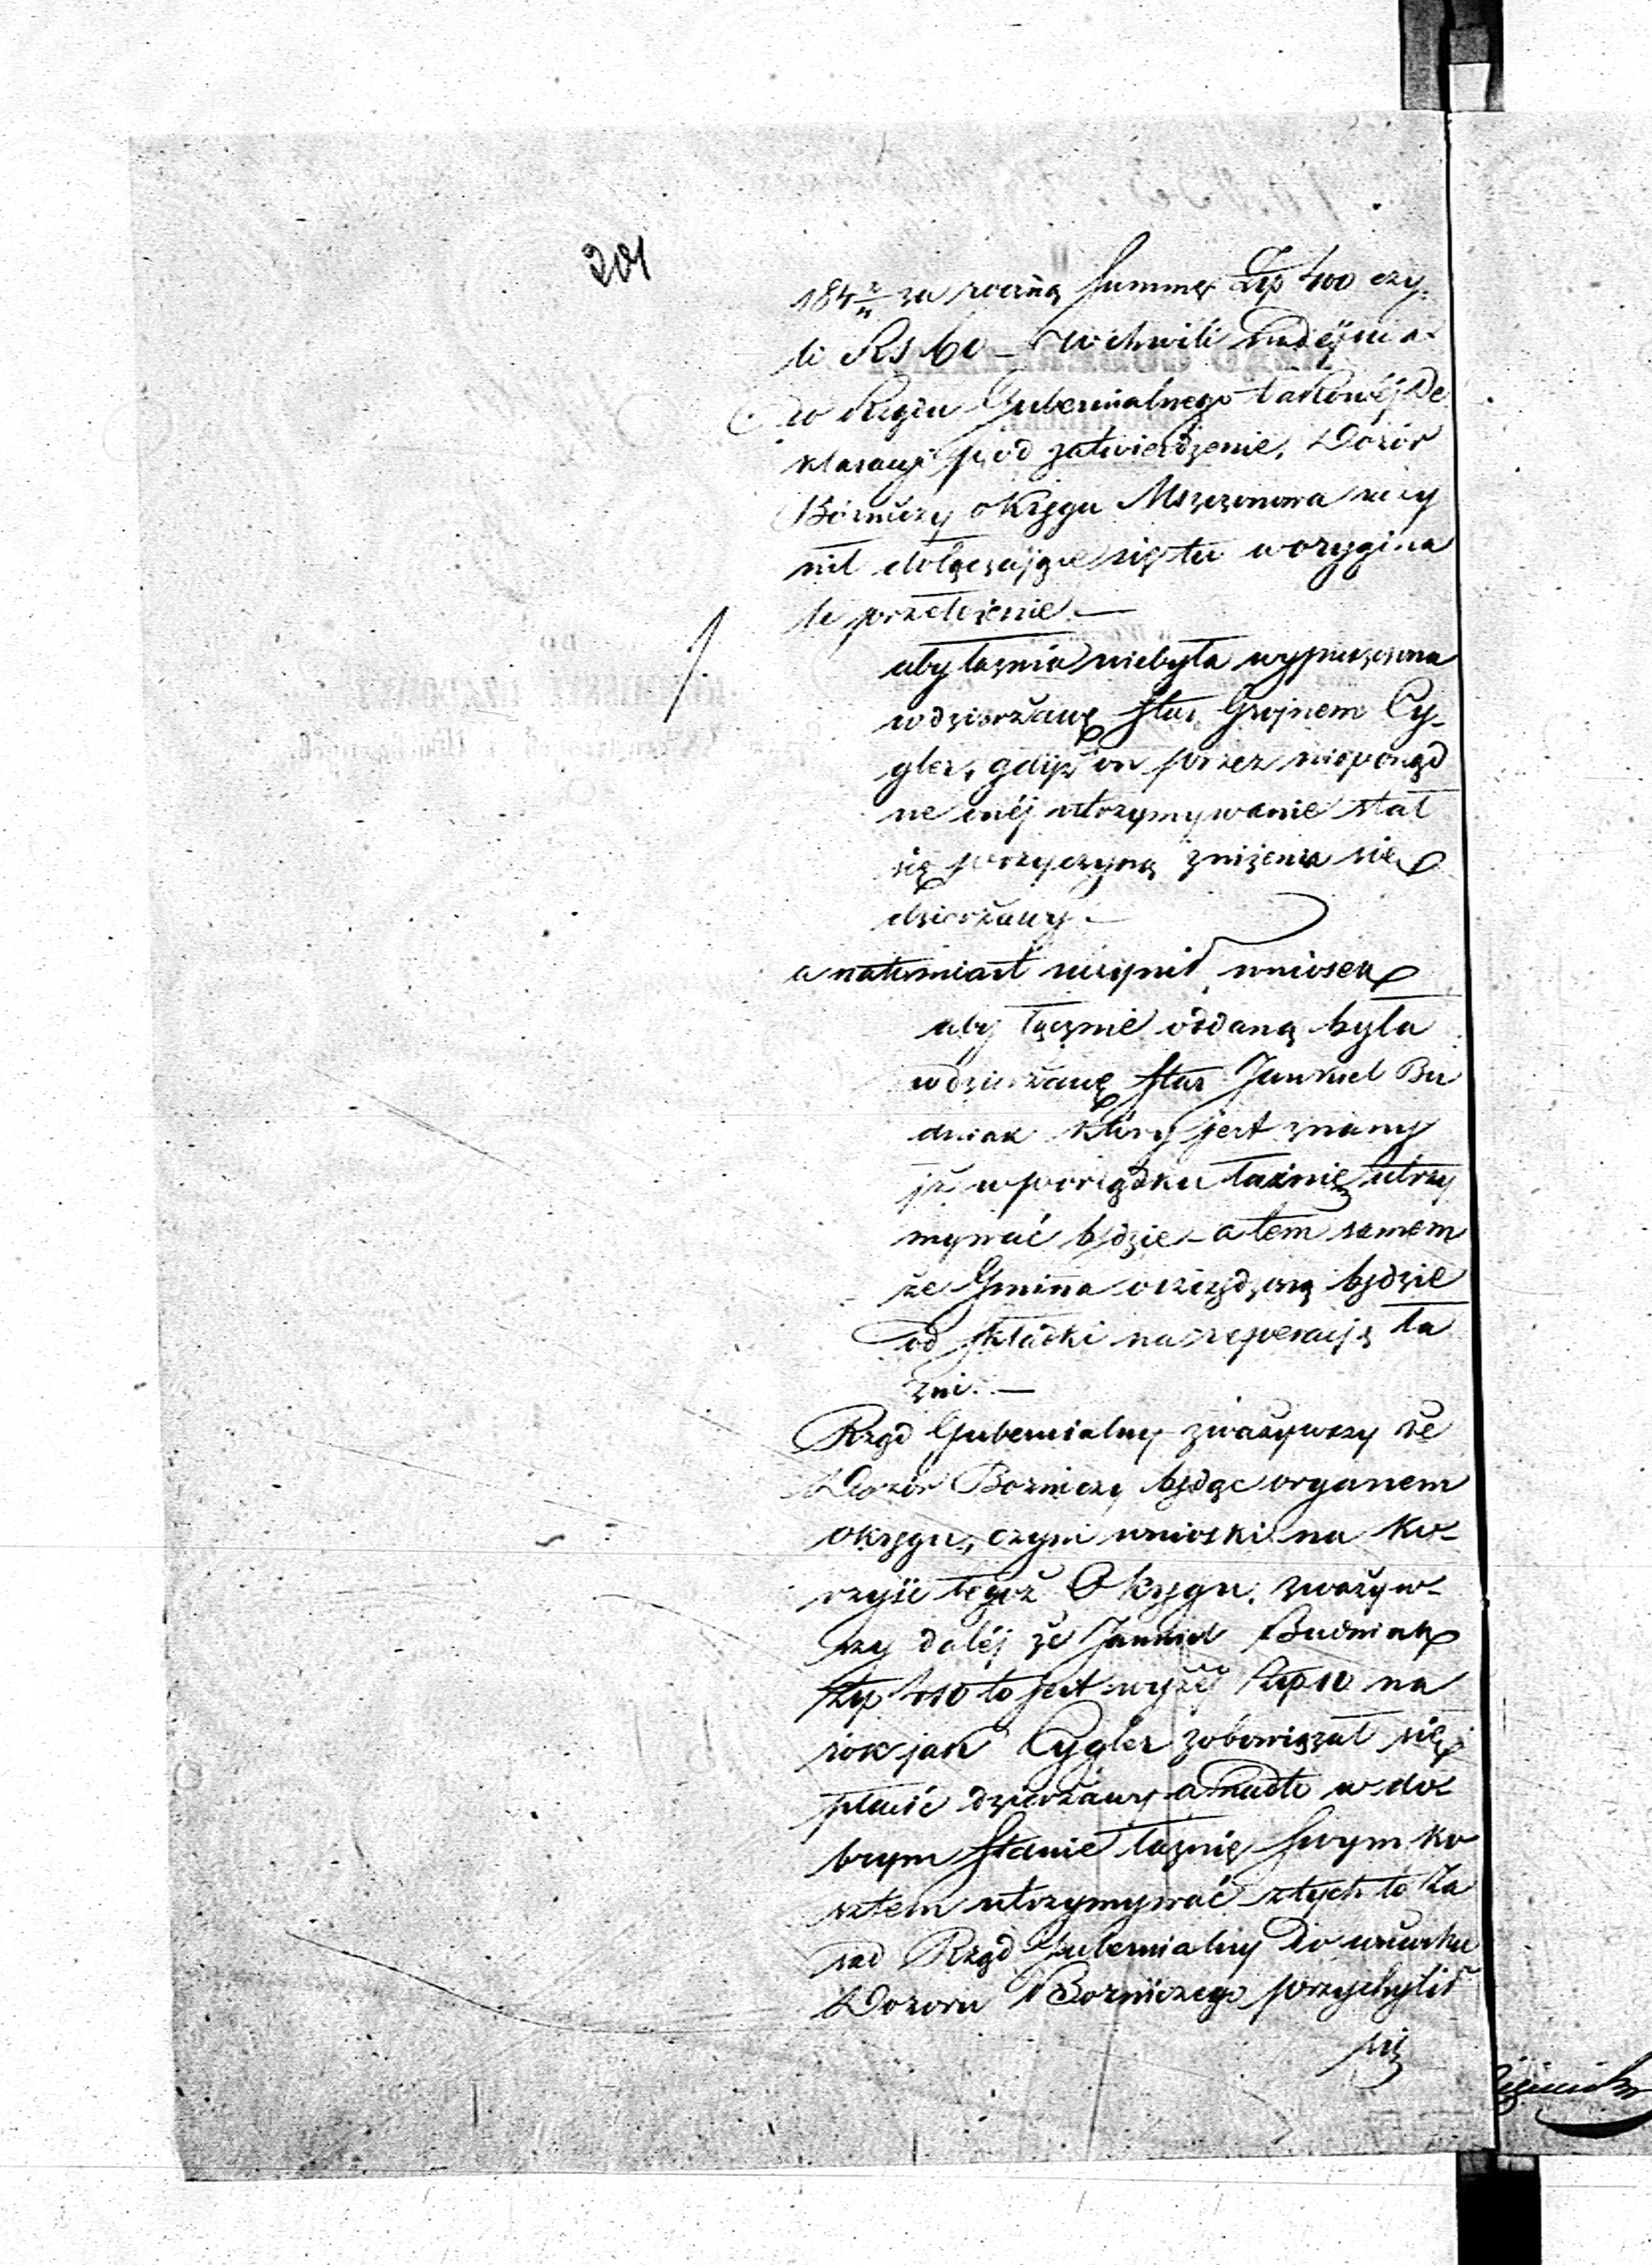 201
184 2/4 za roczną summę Złp 400 czy-
li Rs 60 – w chwili nadejścia
do Rządu Gubernialnego takowéj De
klaracyi pod zatwierdzenie, Dozór
Bóźniczy okręgu Mszczonowa uczy
nił dołączające się tu w orygina
le przełożenie. —
aby łaźnia niebyła wypuszczona
w dzierżawę Star. Grojnem Cy-
gler, gdyż on przez nieporząd
ne onéj utrzymywanie stał
się przyczyną zniżenia się
dzierżawy. —
a natomiast uczynił wniosek
aby łaźnie oddaną była
w dzierżawę Star Jankiel Bu
dniak który jest znany
iż w porządku łaźnię utrzy
mywać będzie – a tem samem
że Gmina oszczędzoną będzie
od składki na reperacyę ła
zni. —
Rząd Gubernialny zważywszy że
Dozór Bozniczy będąc organem
okręgu, czyni wnioski na ko-
rzyść tegoż Okręgu, zważyw-
szy daléj że Jankiel Budniak
Złp 410 to jest wyżéj Złp 10 na
rok jak Cygler zobowiązał się
płacić dzierżawy a nadto w do
brym stanie łaźnię swym ko
sztem utrzymywać z tych to Za
sad Rząd Gubernialny do wniosku
Dozoru Bozniczego przychylił
się